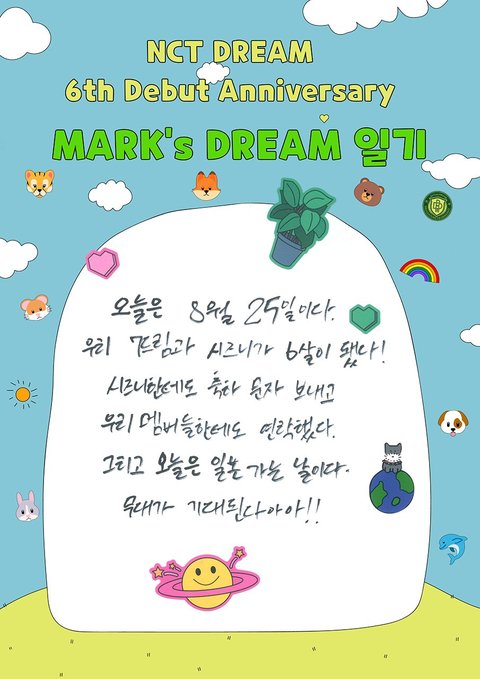 NCT DREAM
6th Debut Anniversary
MARK's DREAM 일기
오늘은 8월 25일이다.
우리 7드림과 시즈니가 6살이 됐다!
시즈니한테도 축하 문자 보내고
우리 멤버들한테도 연락했다.
그리고 오늘은 일본 가는 날이다.
무대가 기대된다아아!!